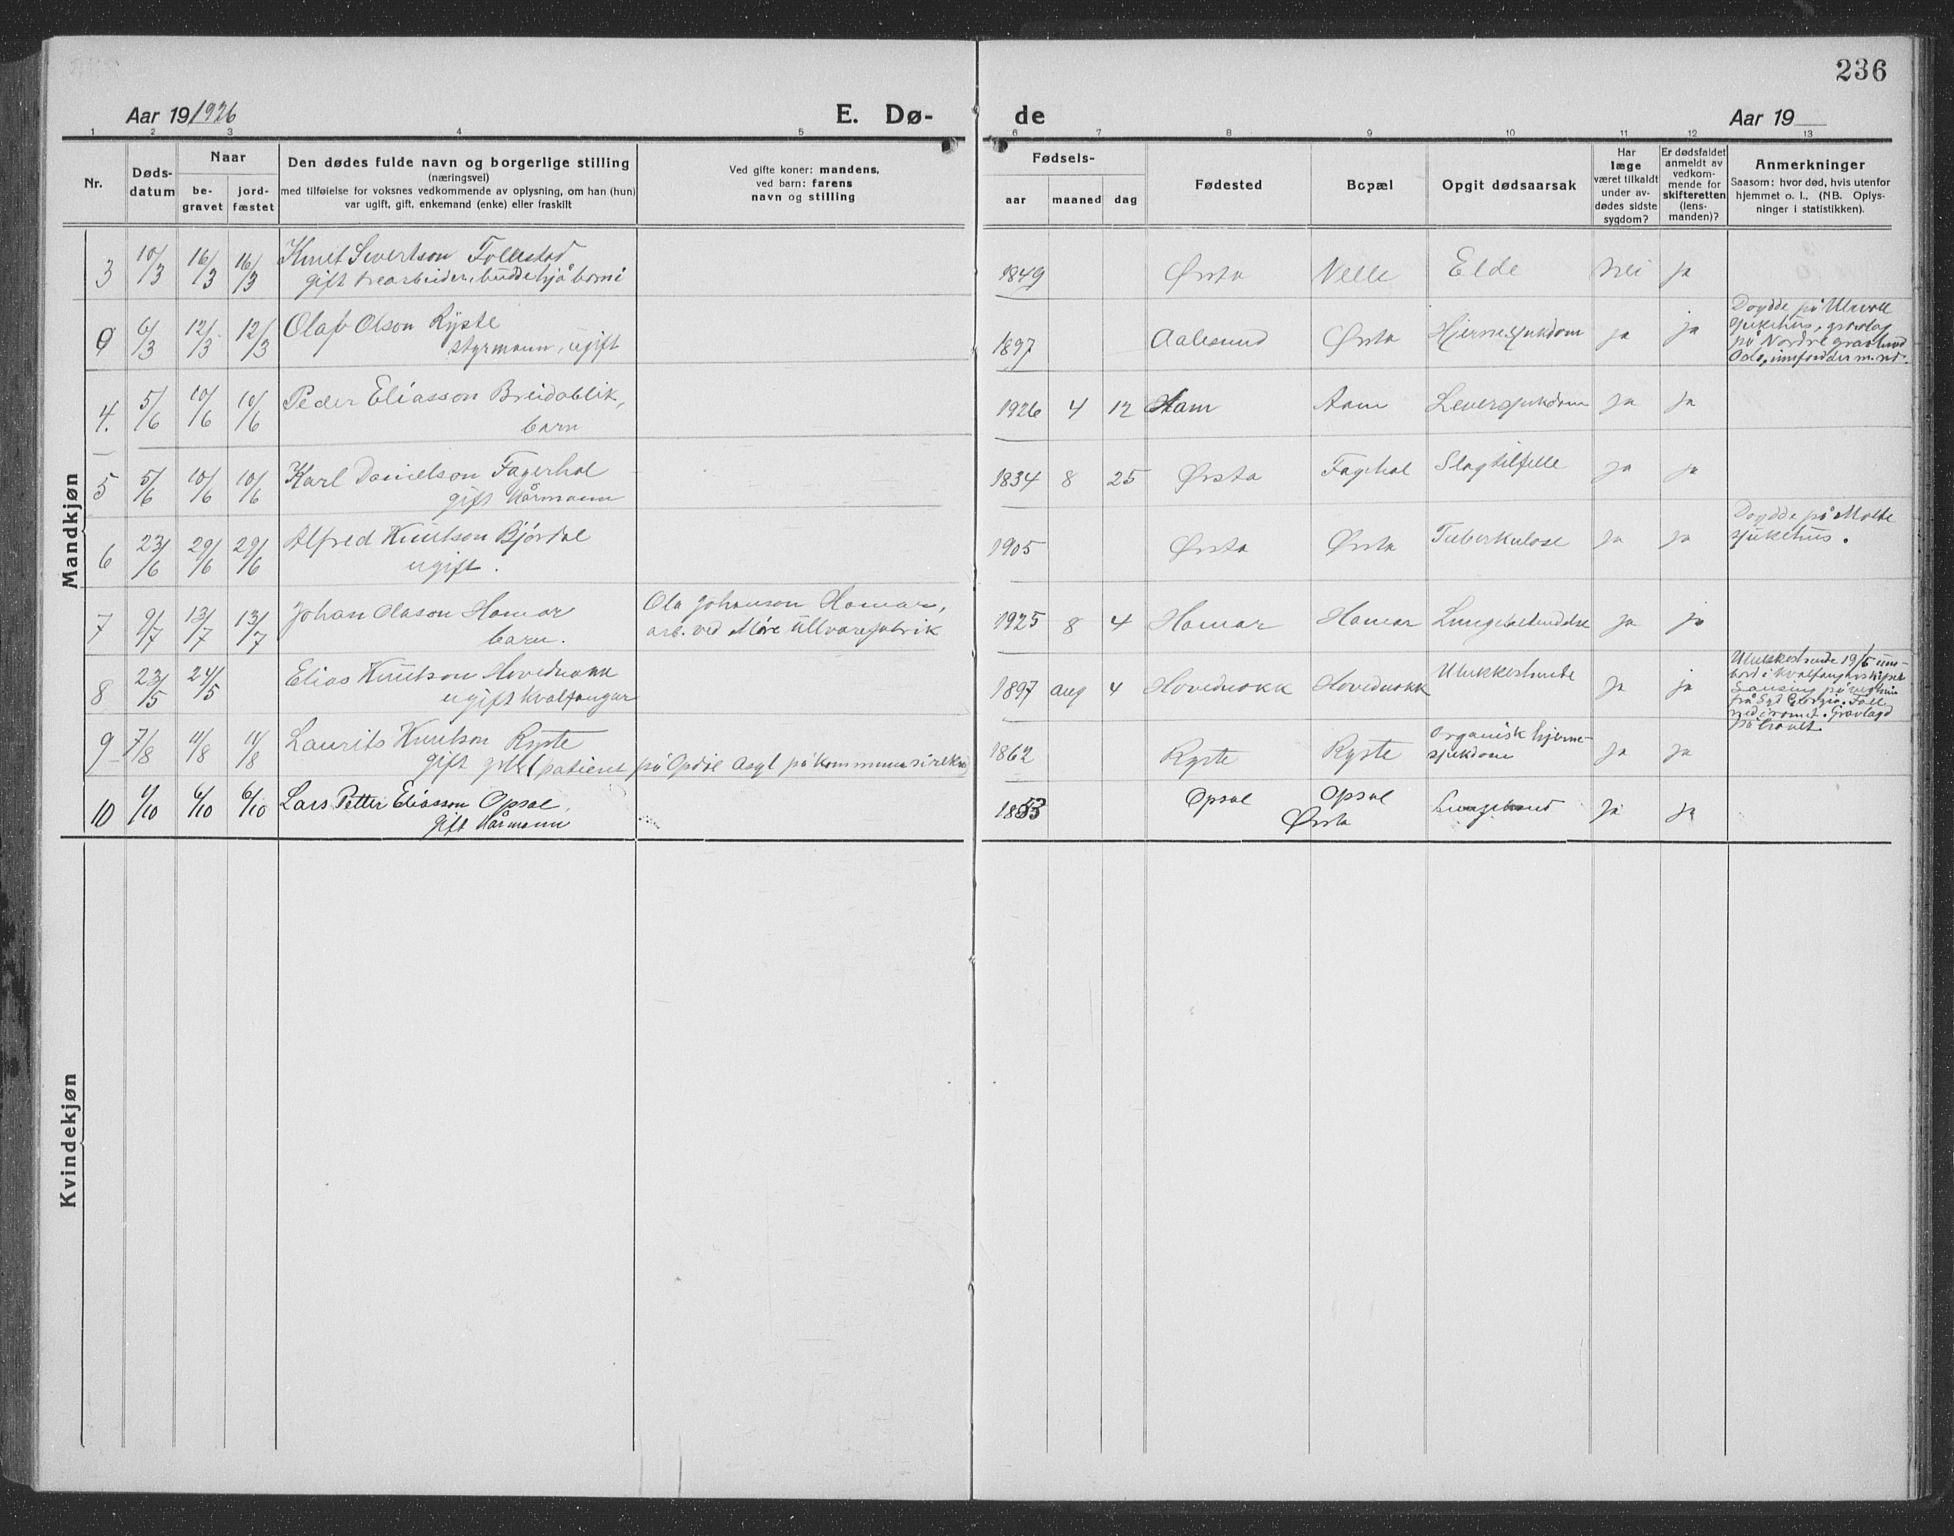 236
Aar 19 1926 E. Dø- de Aar 19
1 2 3 4 5 6 7 8 9 10 11 12 13
Nr. Dødsdatum Naar begravet jordfæstet
Den dødes fulde navn og borgerlige stilling
(næringsvei)
med tilføielse for voksnes vedkommende av oplysning, om han (hun)
var ugift, gift, enkemand (enke) eller fraskilt
Ved gifte koner: mandens,
ved barn: farens
navn og stilling
Fødsels- aar maaned dag
Fødested Bopæl Opgit dødsaarsak
Har læge været tilkaldt under avdødes sidste sygdom?
Er dødsfaldet anmeldt av vedkommende for skifteretten (lensmanden)?
Anmerkninger
Saasom: hvor død, hvis utenfor
hjemmet o. l., (NB. Oplysninger i statistikken).
Mandkjøn
3 10/3 16/3 16/3 Knut Sivertson Follestad 1849 Ørsta Velle Elde Nei ja
gift trearbeider, budde hjå borni
0 6/3 12/3 12/3 Olaf Olson Ryste 1897 Aalesund Ørsta Hjernesjukdom ja ja
styrmann, ugift
Doydde på Ulevoll
sjukehus, gravlag
på Nordre gravlund
Oslo,
4. 5/6 10/6 10/6 Peder Eliasson Breidablik, 1926 4 12 Aam Aam Leversjukdom ja ja
barn
5 5/6 10/6 10/6 Karl Danielson Fagerhol 1834 8 25 Ørsta Fagerhol Slagtilfelle ja ja
gift kårmann
6 23/6 29/6 29/6 Alfred Knutson Bjørdal 1905 Ørsta Ørsta Tuberkulose ja ja
ugift.
Doydde på Molde
sjukehus.
7 9/7 13/7 13/7 Johan Olason Hamar Ola Johanson Hamar, 1925 8 4 Hamar Hamar Lungebetendelse ja ja
barn. arb. ved Møre ullvarefabrik
8 23/5 24/5 Elias Knutson Hovednakk 1897 aug 4 Hovednakk Hovednakk Ulukkestende ja ja
ugift kvalfangar
Ulukkestende 19/5 um-
bord i kvalfangarskipet
Lansing på vegheim
frå Syd Georgia. Fall
ned i romet. Gravlagd
på havet.
9 7/8 11/8 11/8 Laurits Knutson Ryste 1862 Ryste Ryste Organisk hjerne-
sjukdom ja ja
gift (patient på Opdøl Asyl på kommunens rekning)
10 1/10 6/10 6/10 Lars Petter Eliasson Opsal 1853 Opsal Opsal Ja ja
gift kårmann Ørsta
Kvindekjøn